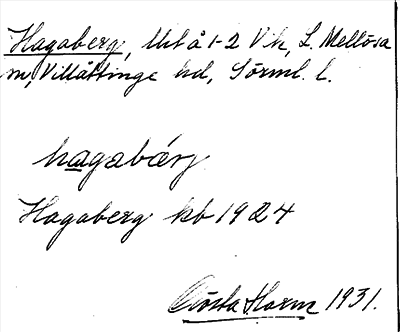 Hagaberg, Utå 1-2 Vh, L. Mellösa
sn, Villåttinge hd, Sörml. l.
hagabärj
Hagaberg kb 1924
Gösta Horm 1931.